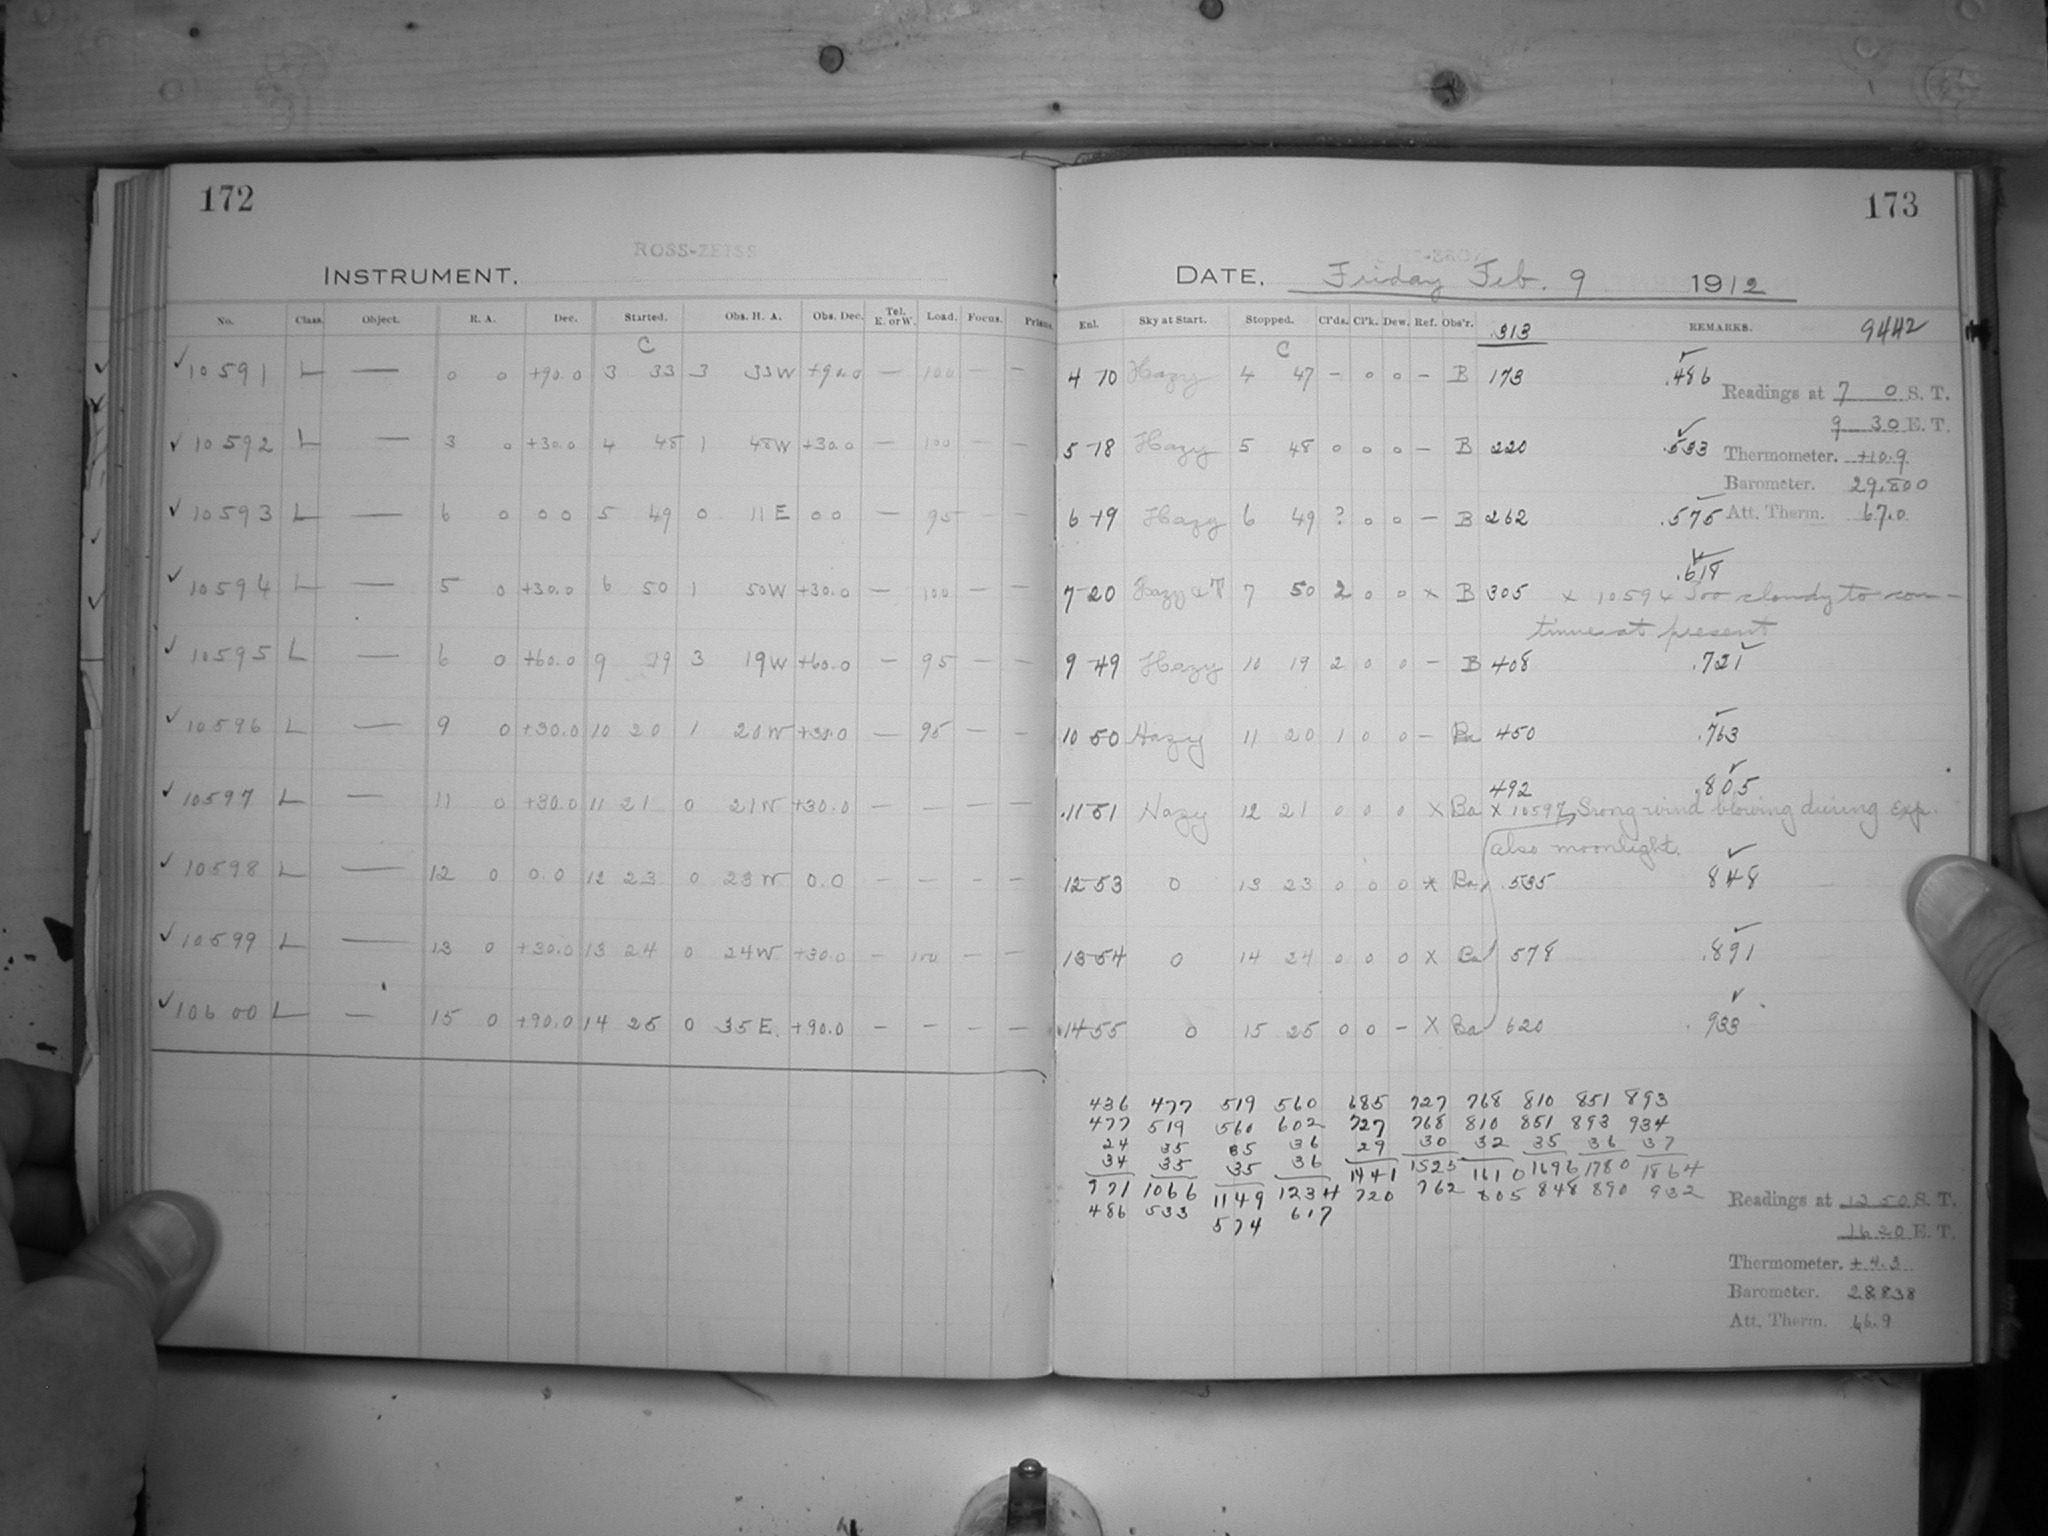 172
ROSS-ZEISS
INSTRUMENT.
No. Class. Object. R. A. Dec. Started. Obs. H. A. Obs. Dec. Tel. E. or W. Load. Focus. Prisms.
C
10591 L — 0 0 +90.0 3 33 3 33W +90.0 — 100 — —
10592 L — 3 0 +30.0 4 48 1 48W +30.0 — 100 — —
10593 L — 6 0 0 0 5 49 0 11 E 0 0 — 95 — —
10594 L — 5 0 +30.0 6 50 1 50W +30.0 — 100 — —
10595 L — 6 0 +60.0 9 19 3 19W +60.0 — 95 — —
10596 L — 9 0 +30.0 10 20 1 20W +30.0 — 95 — —
10597 L — 11 0 +30.0 11 21 0 21W +30.0 — — — —
10598 L — 12 0 0.0 12 23 0 23W 0.0 — — — —
10599 L — 13 0 +30.0 13 24 0 24W +30.0 — 100 — —
10600 L — 15 0 +90.0 14 25 0 35E. +90.0 — — — —
173
DATE. Friday Feb. 9 1912
Enl. Sky at Start. Stopped. Cl'ds. Cl'k. Dew. Ref. Obs'r. .313 REMARKS. 9442
C
4 10 Hazy 4 47 — 0 0 — B 173 .486
Readings at 7 0 S. T.
9 30 E. T.
5 18 Hazy 5 48 0 0 0 — B 220 .533
Thermometer. +10.9
Barometer. 29.800
6 19 Hazy 6 49 ? 0 0 — B 262 .575
Att. Therm. 67.0
.618
7 20 Hazy & T 7 50 2 0 0 x B 305 x 10594 Too cloudy to con-
tinue at present
9 49 Hazy 10 19 2 0 0 — B 408 .721
10 50 Hazy 11 20 1 0 0 — Ba 450 .763
492 .805
11 51 Hazy 12 21 0 0 0 X Ba X 10597 Srong wind blowing during Exp.
also moonlight.
12 53 0 13 23 0 0 0 X Ba .535 848
13 54 0 14 24 0 0 0 X Ba 578 .891
14 55 0 15 25 0 0 — X Ba 620 .933
436 477 519 560 685 727 768 810 851 893
477 519 560 602 727 768 810 851 893 934
24 35 35 36 29 30 32 35 36 37
34 35 35 36 1441 1525 1610 1696 1780 1864
971 1066 1149 1234 720 762 805 848 890 932
486 533 574 617
Readings at 13 50 S. T.
16 20 E. T.
Thermometer. + 4.3
Barometer. 28838
Att. Therm. 66.9